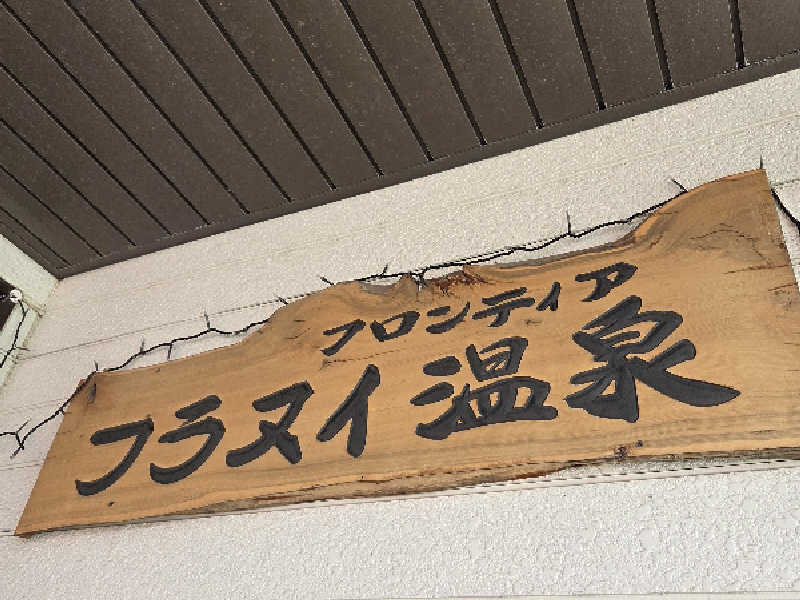 フロンティア
フラヌイ温泉